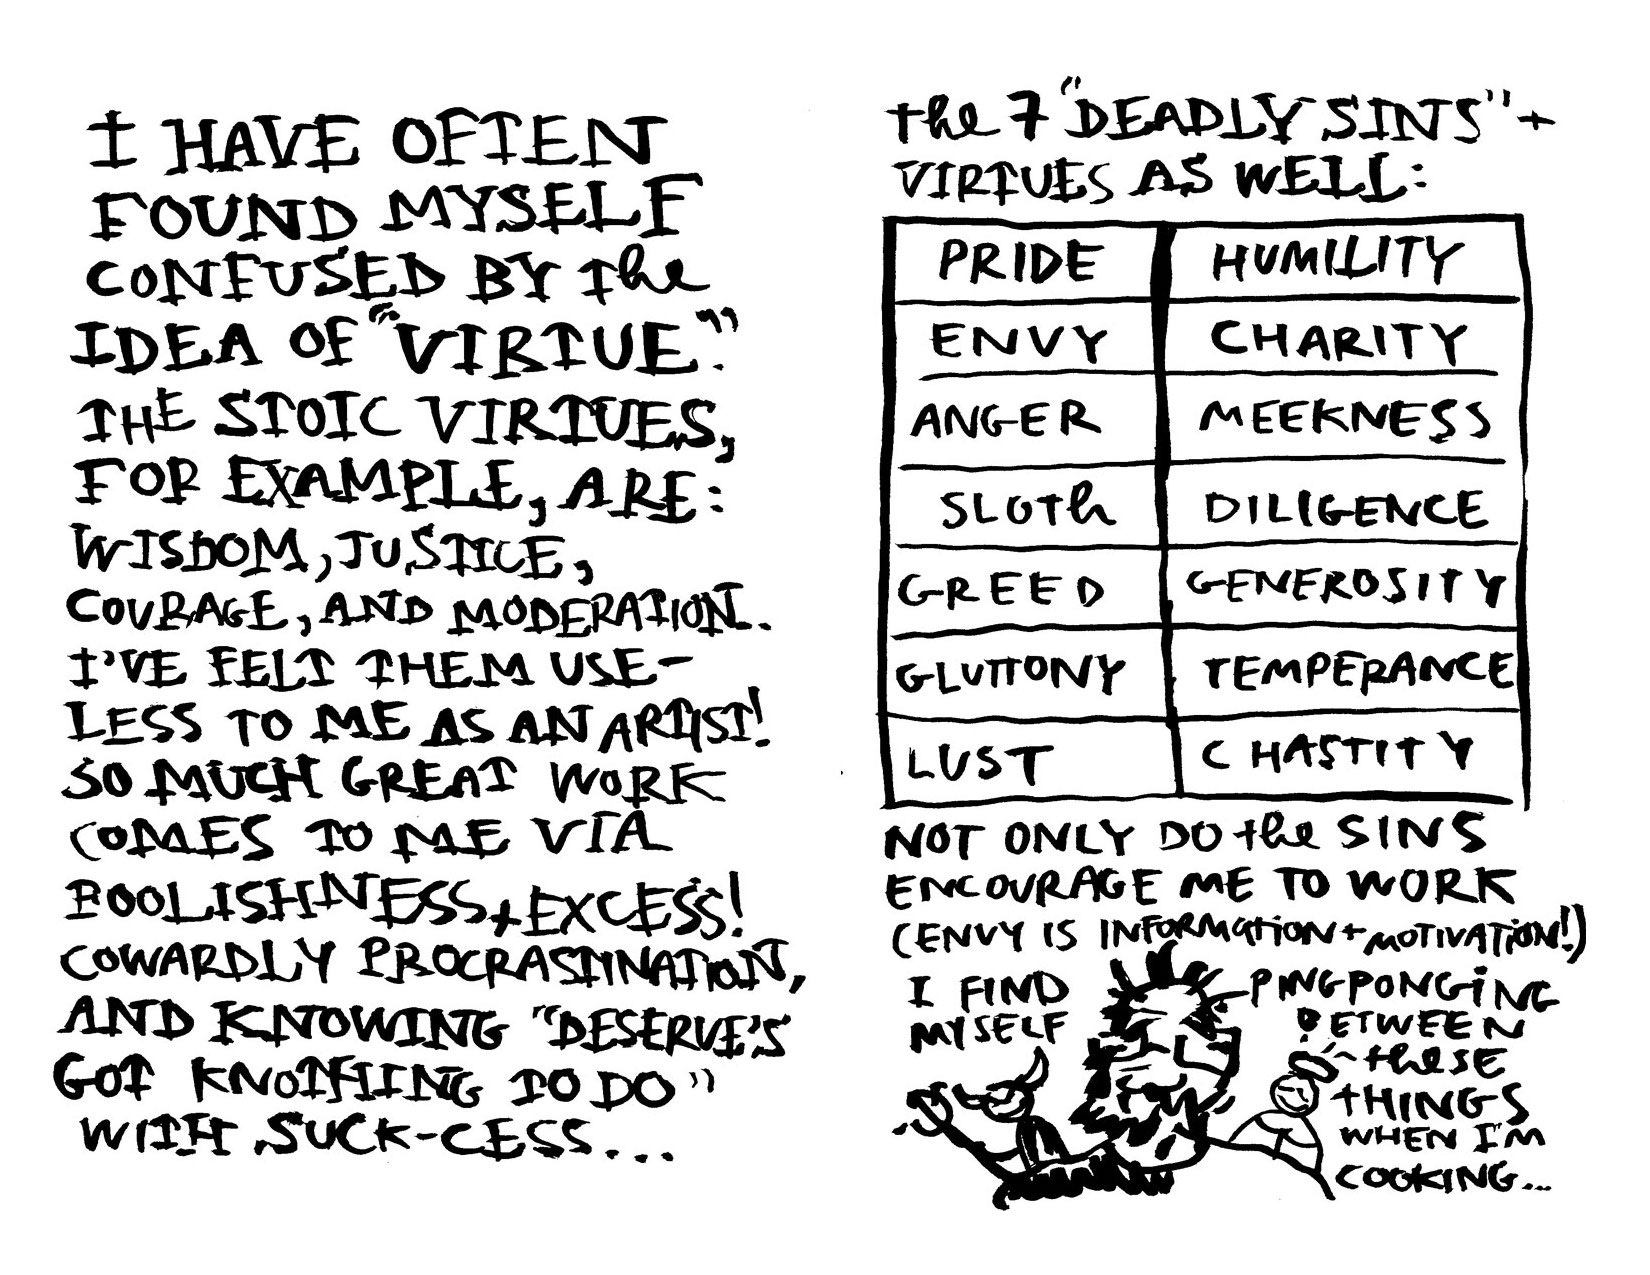 I HAVE OFTEN
FOUND MYSELF
CONFUSED BY the
IDEA OF "VIRTUE."
THE STOIC VIRTUES,
FOR EXAMPLE, ARE:
WISDOM, JUSTICE,
COURAGE, AND MODERATION..
I'VE FELT THEM USE-
LESS TO ME AS AN ARTIST!
SO MUCH GREAT WORK
COMES TO ME VIA
FOOLISHNESS + EXCESS!
COWARDLY PROCRASTINATION,
AND KNOWING "DESERVE'S
GOT KNOTHING TO DO"
WITH SUCK-CESS...
the 7 "DEADLY SINS" +
VIRTUES AS WELL:
PRIDE HUMILITY
ENVY CHARITY
ANGER MEEKNESS
SLOTh DILIGENCE
GREED GENEROSITY
GLUTTONY TEMPERANCE
LUST CHASTITY
NOT ONLY DO the SINS
ENCOURAGE ME TO WORK
(ENVY IS INFORMATION + MOTIVATION!)
I FIND
MYSELF
PINGPONGING
BETWEEN
these
THINGS
WHEN I'M
COOKING...